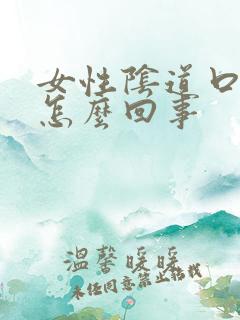 女性陰道口
怎麼回事
溫馨暖暖
未经同意禁止转载